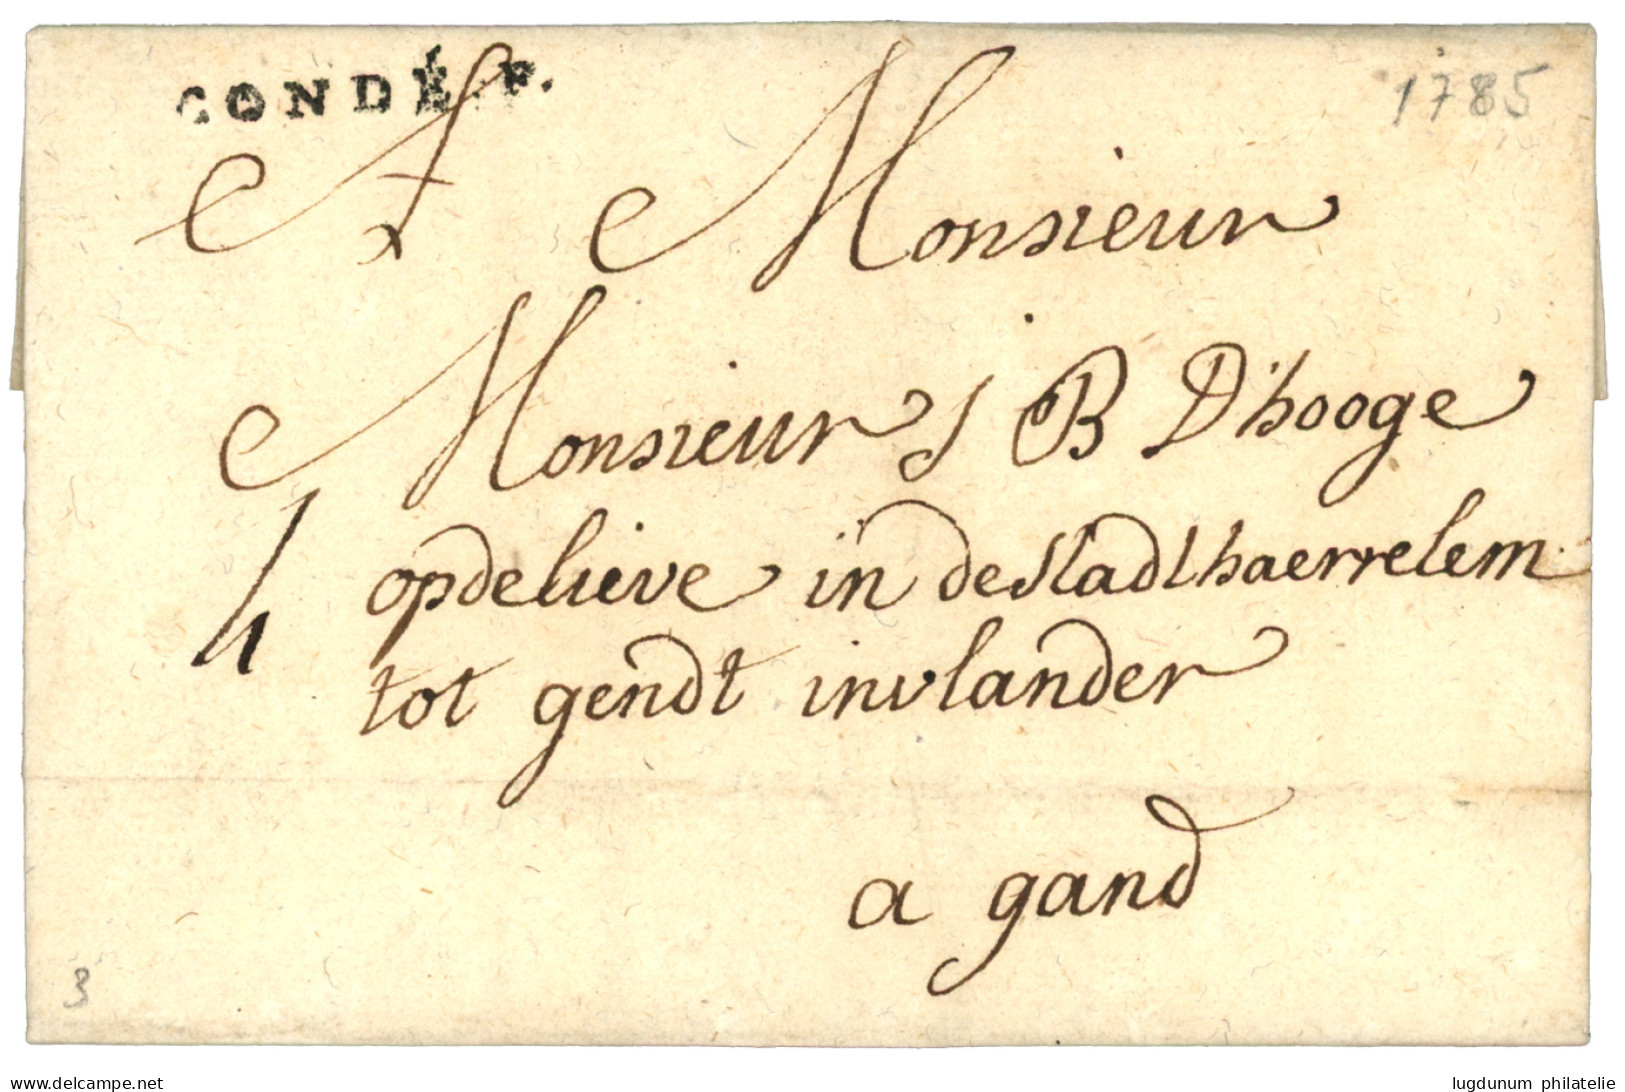 CONDÉ.F.
1785
A Monsieur
Monsieur J B D'hooge
opdelieve in destadt haerrelem
4
tot gendt invlander
a gand
3
www.delcampe.net
lugdunum philatelie